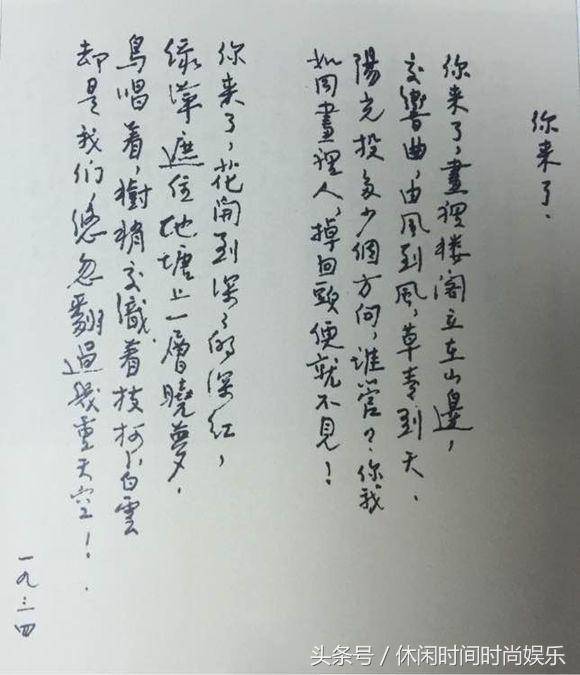 你来了.
你来了,畫裡楼阁立在山邊,
交響曲,由風到風,草青到天、
陽光投多少個方向,谁管?你,我
如同畫裡人,掉回頭便就不見!
你来了,花開到深々的深红,
绿萍遮住池塘上一層曉夢,
鳥唱着,樹梢交織着枝柯,白雲
却是我们,悠忽翻過幾重天空!
一九三四
头条号/休闲时间时尚娱乐